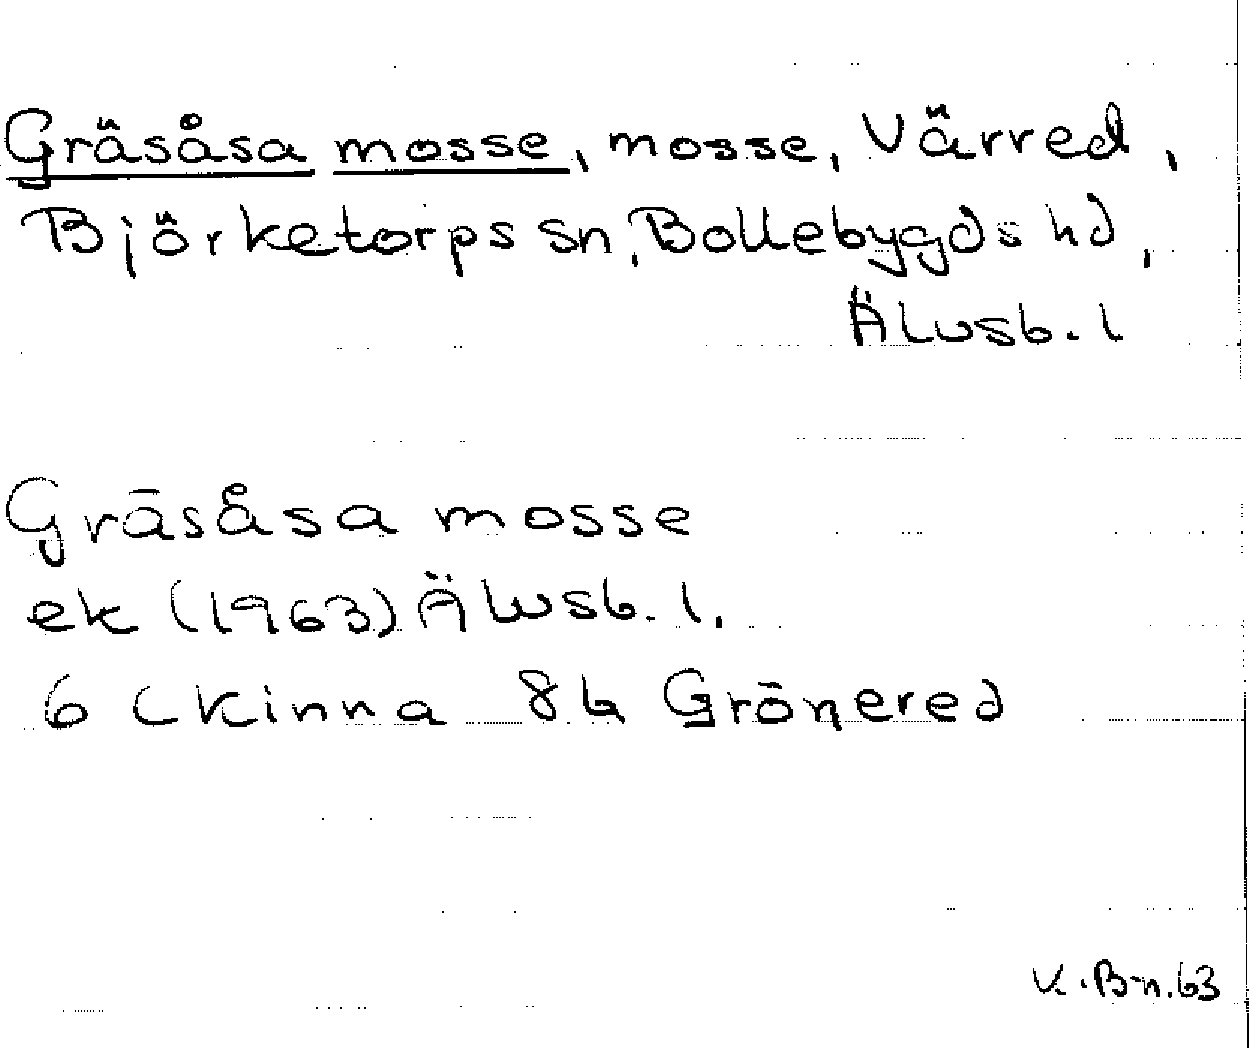 Gräsåsa mosse, mosse, Värred,
Björketorps sn, Bollebygds hd,
Älvsb. l
Gräsåsa mosse
ek (1963) Älvsb. l.
6 C Kinna 8h Grönered
K. B-n. 63